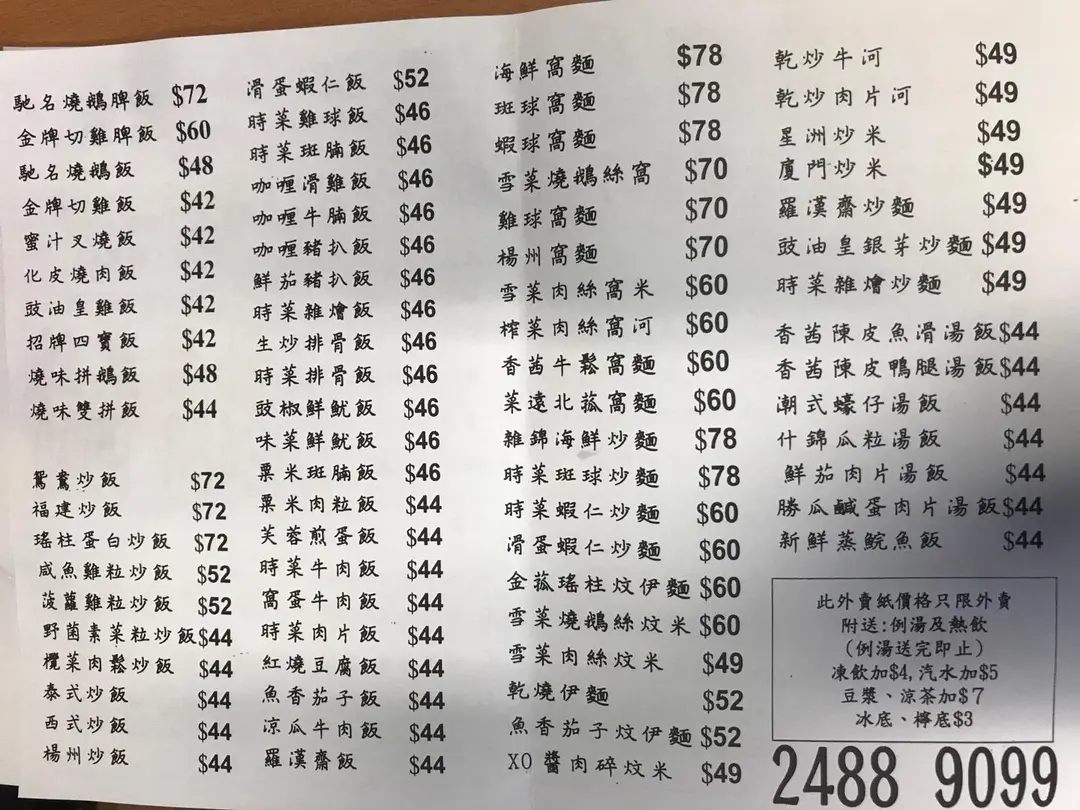 馳名燒鵝脾飯 $72
金牌切雞脾飯 $60
馳名燒鵝飯 $48
金牌切雞飯 $42
蜜汁叉燒飯 $42
化皮燒肉飯 $42
豉油皇雞飯 $42
招牌四寶飯 $42
燒味拼鵝飯 $48
燒味雙拼飯 $44
鴛鴦炒飯 $72
福建炒飯 $72
瑤柱蛋白炒飯 $72
咸魚雞粒炒飯 $52
菠蘿雞粒炒飯 $52
野菌素菜粒炒飯 $44
欖菜肉鬆炒飯 $44
泰式炒飯 $44
西式炒飯 $44
楊州炒飯 $44
滑蛋蝦仁飯 $52
時菜雞球飯 $46
時菜斑腩飯 $46
咖喱滑雞飯 $46
咖喱牛腩飯 $46
咖喱豬扒飯 $46
鮮茄豬扒飯 $46
時菜雜燴飯 $46
生炒排骨飯 $46
時菜排骨飯 $46
豉椒鮮魷飯 $46
味菜鮮魷飯 $46
粟米斑腩飯 $46
粟米肉粒飯 $44
芙蓉煎蛋飯 $44
時菜牛肉飯 $44
窩蛋牛肉飯 $44
時菜肉片飯 $44
紅燒豆腐飯 $44
魚香茄子飯 $44
涼瓜牛肉飯 $44
羅漢齋飯 $44
海鮮窩麵 $78
斑球窩麵 $78
蝦球窩麵 $78
雪菜燒鵝絲窩 $70
雞球窩麵 $70
楊州窩麵 $70
雪菜肉絲窩米 $60
榨菜肉絲窩河 $60
香茜牛鬆窩麵 $60
菜遠北菰窩麵 $60
雜錦海鮮炒麵 $78
時菜斑球炒麵 $78
時菜蝦仁炒麵 $60
滑蛋蝦仁炒麵 $60
金菰瑤柱炆伊麵 $60
雪菜燒鵝絲炆米 $60
雪菜肉絲炆米 $49
乾燒伊麵 $52
魚香茄子炆伊麵 $52
XO醬肉碎炆米 $49
乾炒牛河 $49
乾炒肉片河 $49
星洲炒米 $49
廈門炒米 $49
羅漢齋炒麵 $49
豉油皇銀芽炒麵 $49
時菜雜燴炒麵 $49
香茜陳皮魚滑湯飯 $44
香茜陳皮鴨腿湯飯 $44
潮式蠔仔湯飯 $44
什錦瓜粒湯飯 $44
鮮茄肉片湯飯 $44
勝瓜鹹蛋肉片湯飯 $44
新鮮蒸鯇魚飯 $44
此外賣紙價格只限外賣
附送:例湯及熱飲
(例湯送完即止)
凍飲加$4,汽水加$5
豆漿、涼茶加$7
冰底、檸底$3
2488 9099